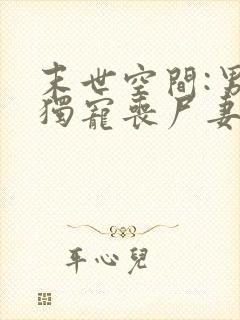 末世空間:男
獨寵喪尸妻
平心兒